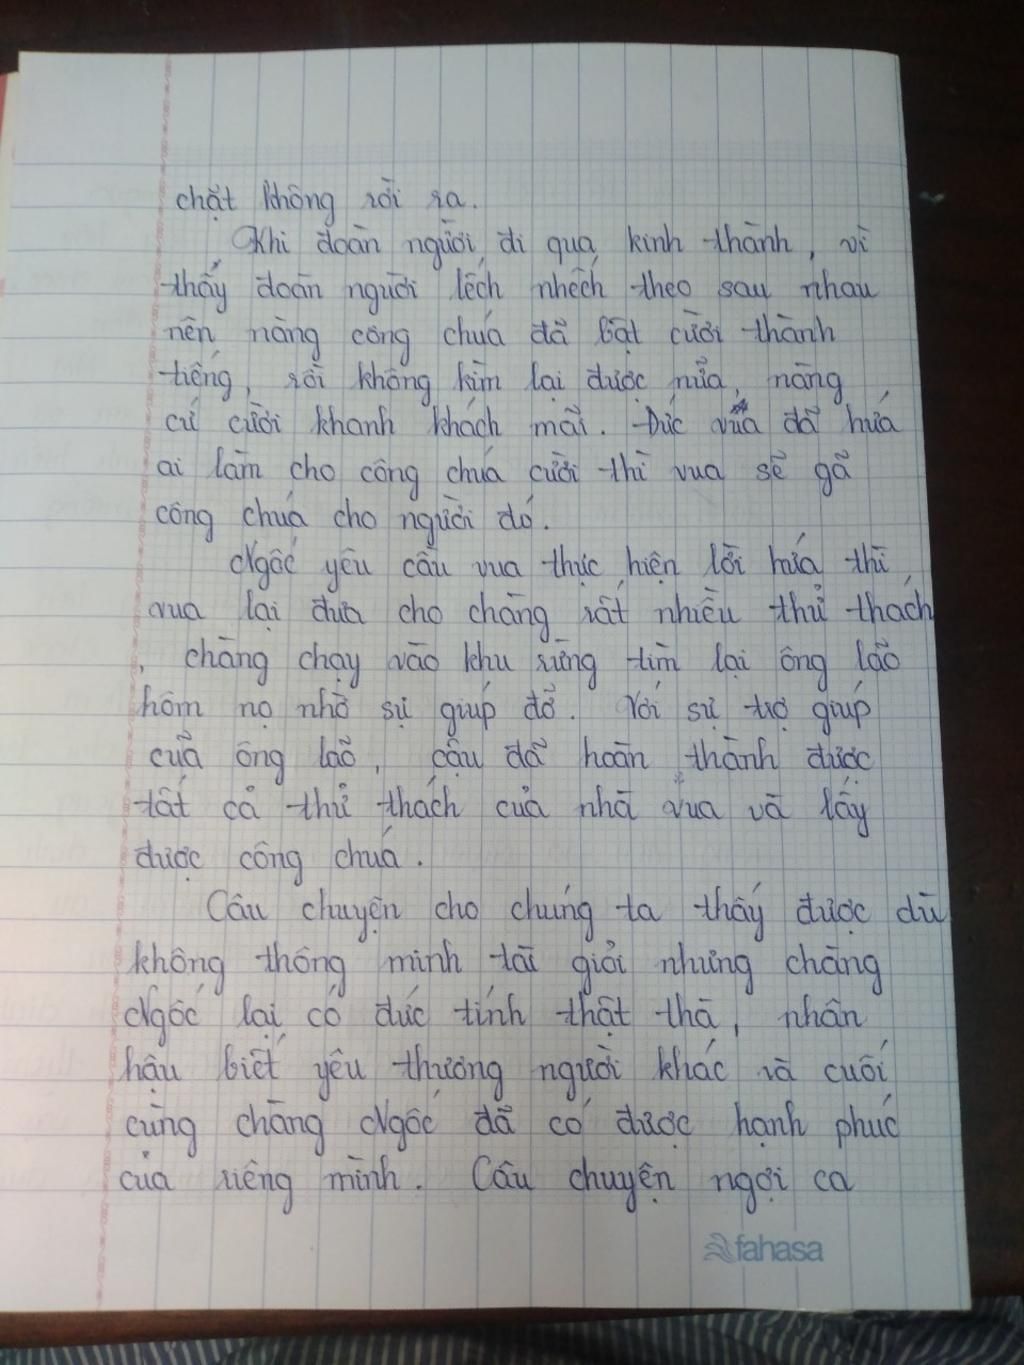 chặt không rời ra.
Khi đoàn người đi qua kinh thành, vì
thấy đoàn người lếch nhếch theo sau nhau
nên nàng công chúa đã bật cười thành
tiếng, rồi không kìm lại được nửa, nàng
cứ cười khanh khách mãi. Đức vua đã hứa
ai làm cho công chúa cười thì vua sẽ gã
công chúa cho người đó.
Ngốc yêu cầu vua thực hiện lời hứa thì
vua lại đưa cho chàng rất nhiều thử thách
, chàng chạy vào khu rừng tìm lại ông lão
hôm nọ nhờ sự giúp đở. Với sự trợ giúp
của ông lão, cậu đã hoàn thành được
tất cả thử thách của nhà vua và lấy
được công chúa.
Câu chuyện cho chúng ta thấy được dù
không thông minh tài giỏi nhưng chàng
Ngốc lại có đức tính thật thà, nhân
hậu biết yêu thương người khác và cuối
cùng chàng Ngốc đã có được hạnh phúc
của riêng mình. Câu chuyện ngợi ca
fahasa